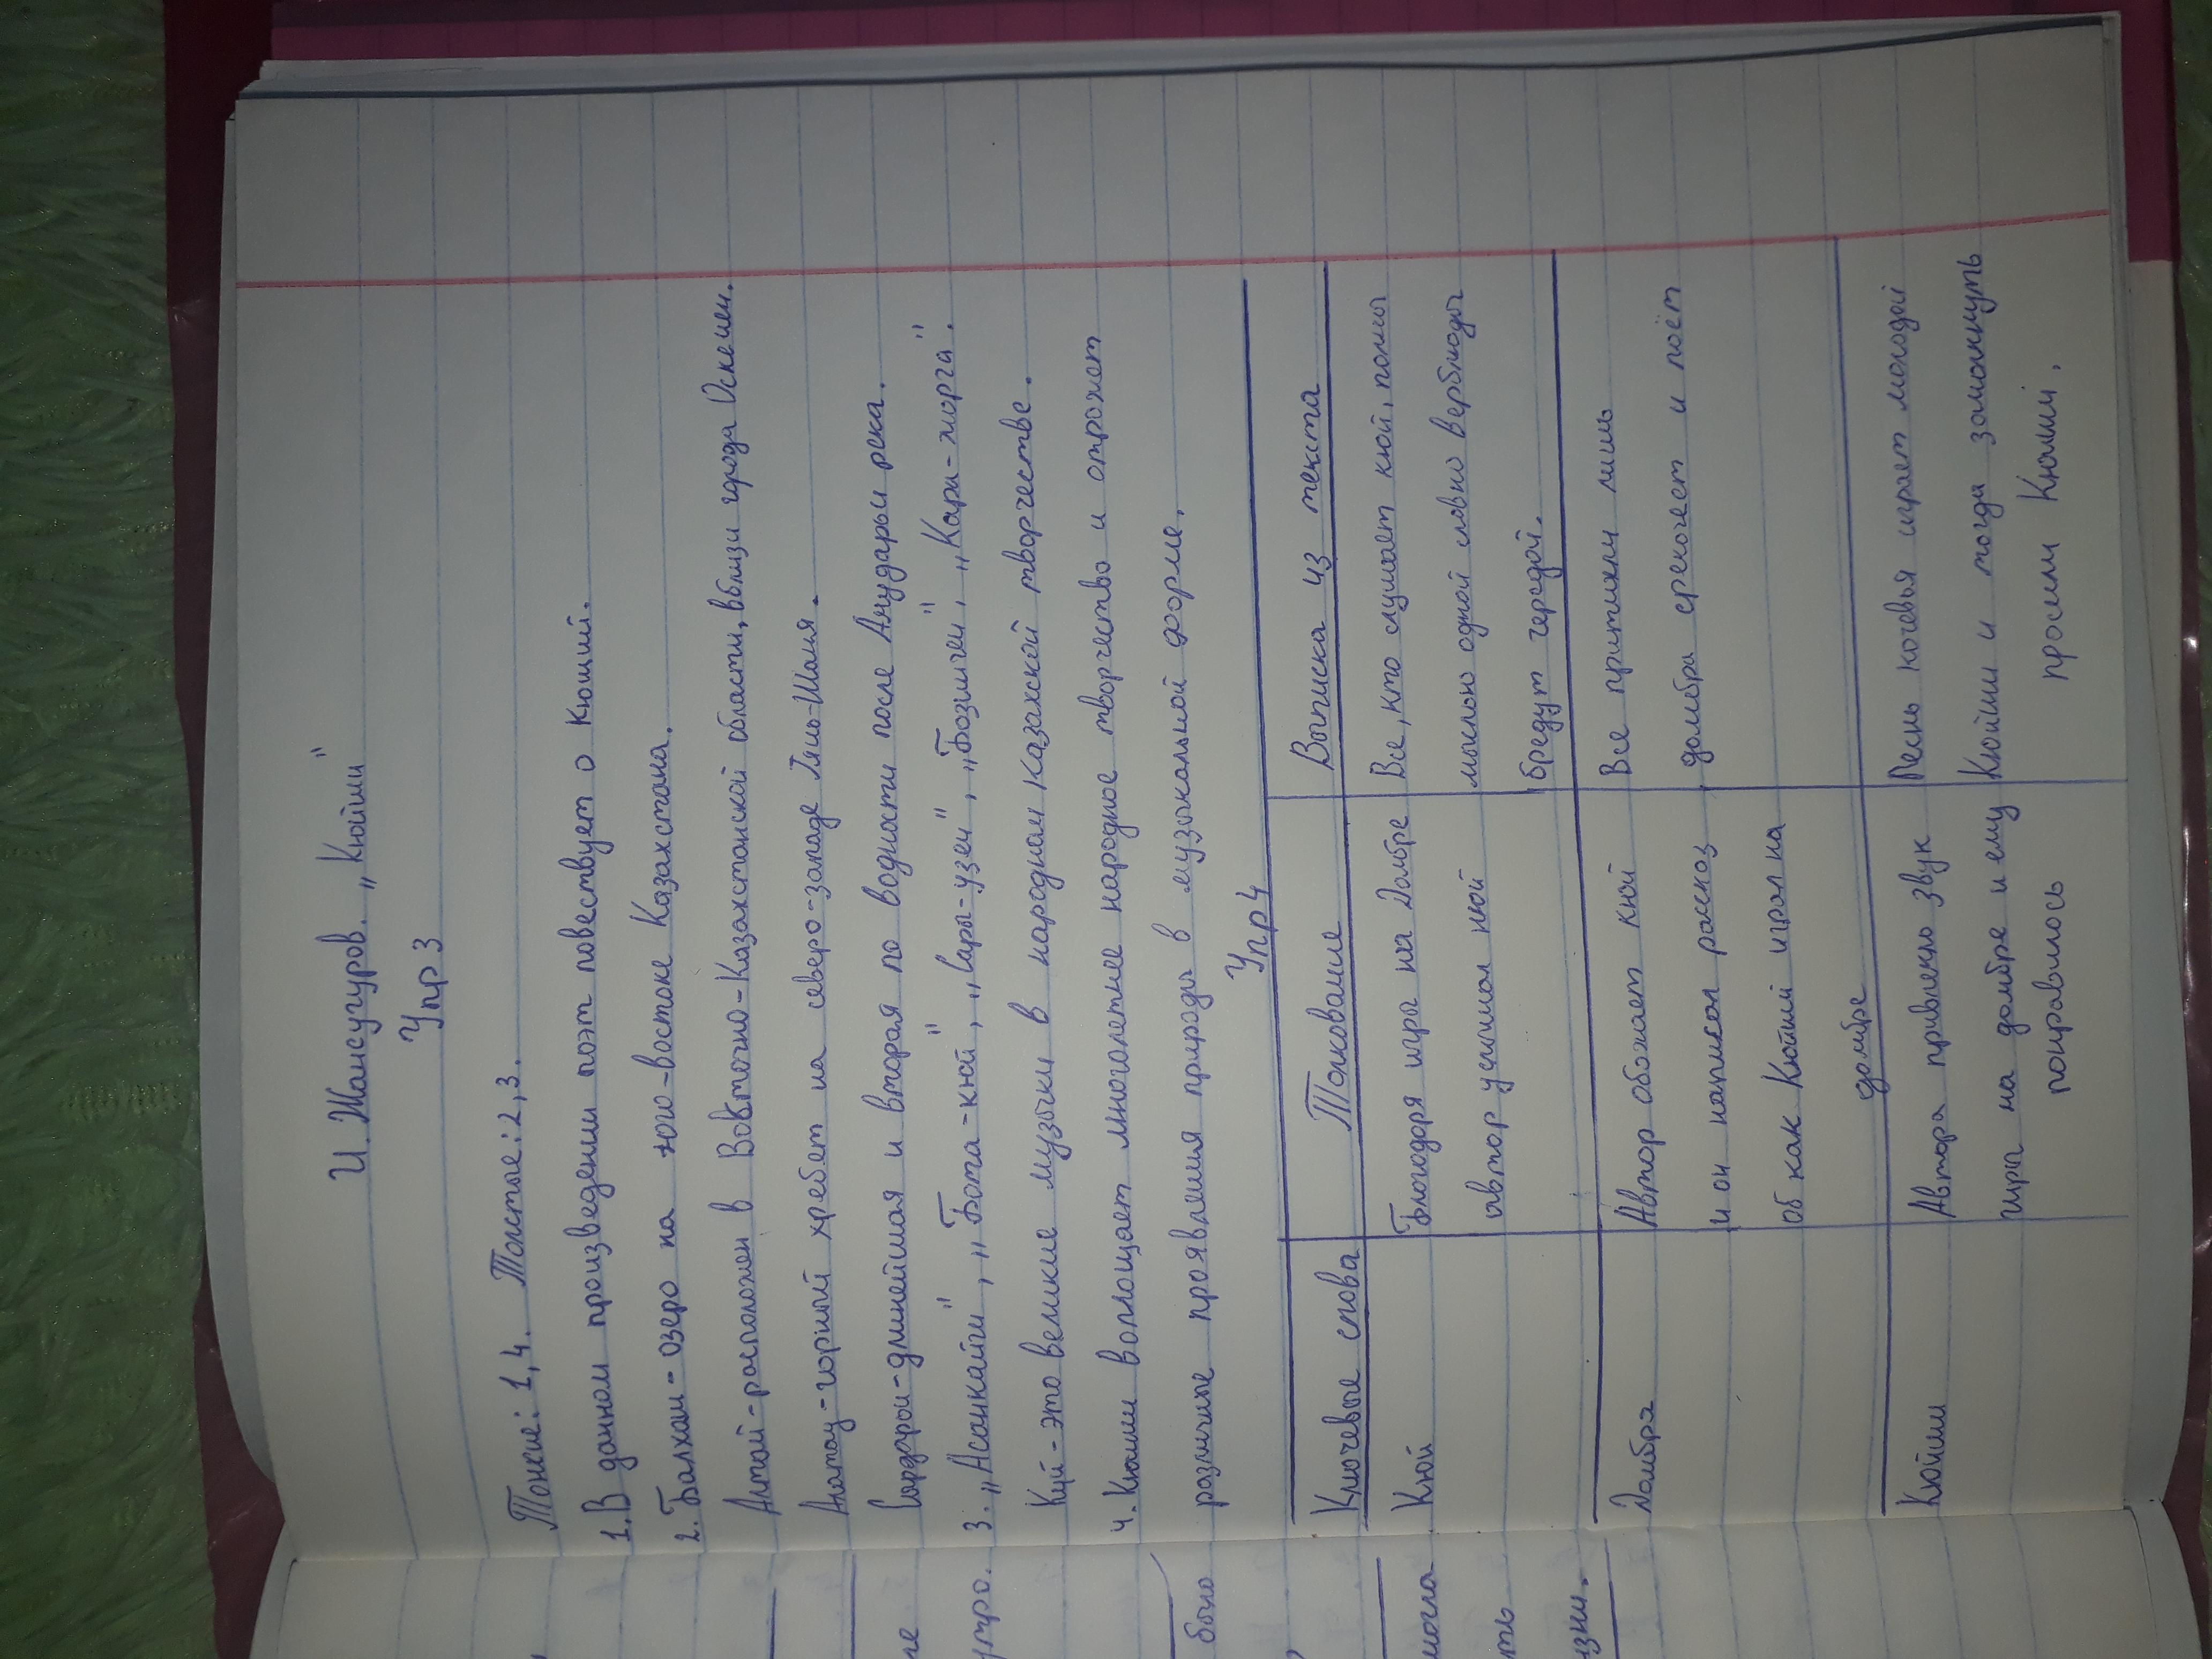 И. Жансугуров. „Кюйши"
Упр 3
Тонкие: 1,4. Толстые: 2,3.
1. В данном произведении поэт повествует о Кюший.
2. Балхаш - озеро на юго-востоке Казахстана.
Алтай - расположен в Восточно-Казахстанской области, вблизи города Оскемен.
Алатау - горный хребет на северо-западе Тянь-Шаня.
Сырдарьи - длиннейшая и вторая по водности после Амударьи река.
3. „Асанкайгы", „Бота-кюй", „Сары-узен", „Бозинген", „Кара-жорга".
Куй - это великие музыки в народном казахской творчестве.
4. Кюиши воплощает многолетнее народное творчество и отрожает
различные проявления природы в музыкальной форме.
Упр 4
Ключевые слова Толкование Выписка из текста
Кюй Благодоря игры на Домбре Все, кто слушает кюй, полны
автор услышал кюй мыслью одной словно верблюды
бредут чередой.
Домбра Автор обожает кюй Все притихли лишь
и он написал рассказ домбра срекочет и поёт
об как Кюйши играл на
домбре
Кюйши Автора привлекло звук Песнь кочевья играет молодой
игры на домбре и ему Кюйши и тогда замолкнуть
понравилось просили Кюйши.
утро.
было
могла
ть
изни.